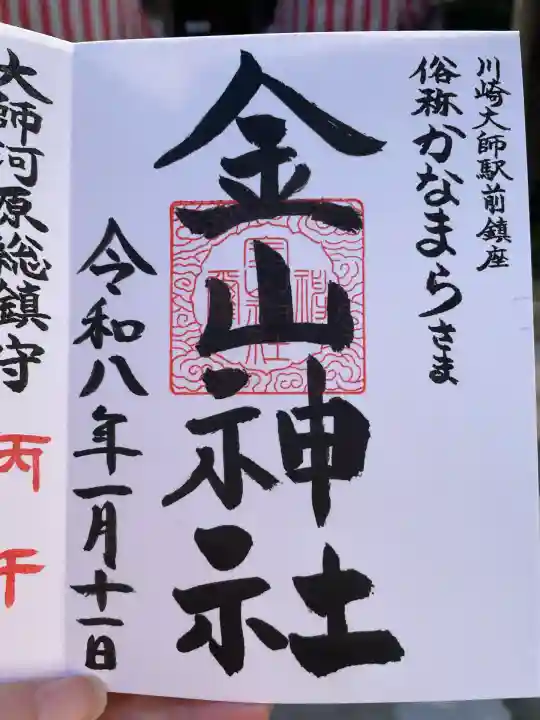 川崎大師駅前鎮座
俗称かなまらさま
金山神社
令和八年一月十一日
大師河原総鎮守
丙午